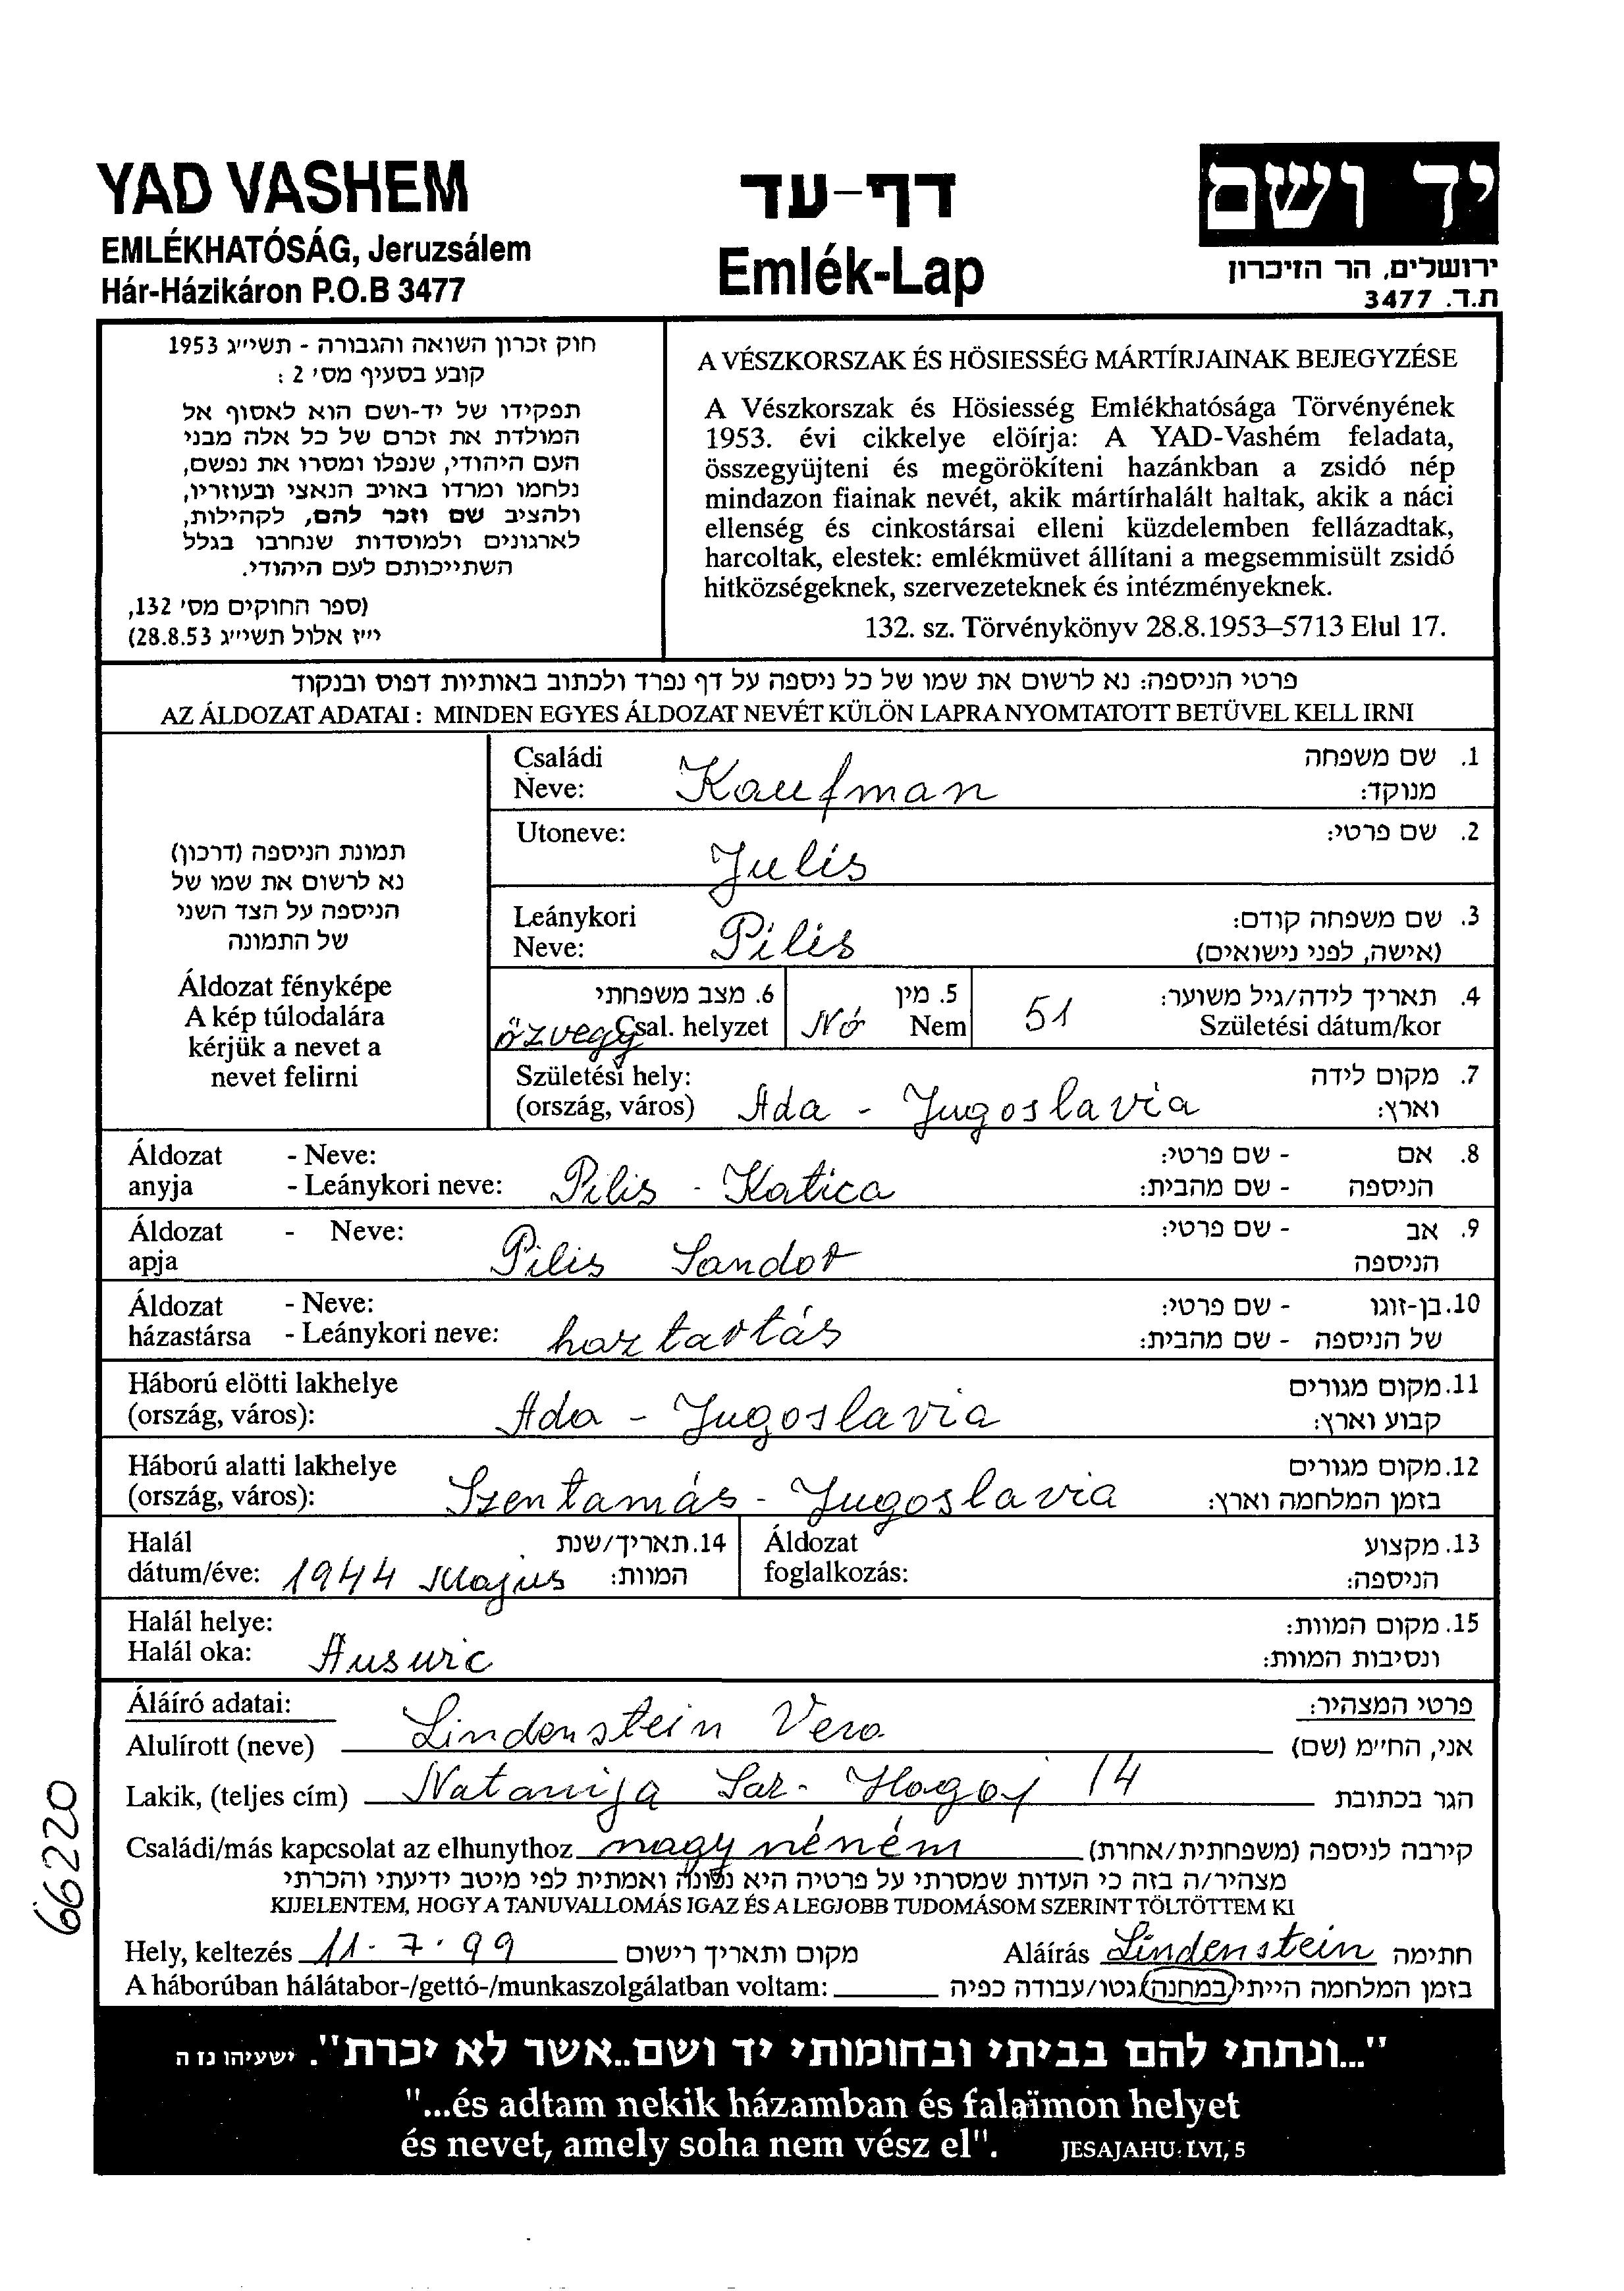 YAD VASHEM
EMLÉKHATÓSÁG, Jeruzsálem
Hár-Házikáron P.O.B 3477
דף-עד
Emlék-Lap
יד ושם
ירושלים, הר הזיכרון
ת.ד. 3477
חוק זכרון השואה והגבורה - תשי״ג 1953
קובע בסעיף מס׳ 2 :
תפקידו של יד-ושם הוא לאסוף אל
המולדת את זכרם של כל אלה מבני
העם היהודי, שנפלו ומסרו את נפשם,
נלחמו ומרדו באויב הנאצי ובעוזריו,
ולהציב שם וזכר להם, לקהילות,
לארגונים ולמוסדות שנחרבו בגלל
השתייכותם לעם היהודי.
(ספר החוקים מס׳ 132,
י״ז אלול תשי״ג 28.8.53)
A VÉSZKORSZAK ÉS HÖSIESSÉG MÁRTÍRJAINAK BEJEGYZÉSE
A Vészkorszak és Hösiesség Emlékhatósága Törvényének
1953. évi cikkelye elöírja: A YAD-Vashém feladata,
összegyüjteni és megörökíteni hazánkban a zsidó nép
mindazon fiainak nevét, akik mártírhalált haltak, akik a náci
ellenség és cinkostársai elleni küzdelemben fellázadtak,
harcoltak, elestek: emlékmüvet állítani a megsemmisült zsidó
hitközségeknek, szervezeteknek és intézményeknek.
132. sz. Törvénykönyv 28.8.1953–5713 Elul 17.
פרטי הניספה: נא לרשום את שמו של כל ניספה על דף נפרד ולכתוב באותיות דפוס ובנקוד
AZ ÁLDOZAT ADATAI : MINDEN EGYES ÁLDOZAT NEVÉT KÜLÖN LAPRA NYOMTATOTT BETÜVEL KELL IRNI
תמונת הניספה (דרכון)
נא לרשום את שמו של
הניספה על הצד השני
של התמונה
Áldozat fényképe
A kép túlodalára
kérjük a nevet a
nevet felirni
Családi
Neve: Kaufman
1. שם משפחה
מנוקד:
Utoneve: Julis
2. שם פרטי:
Leánykori
Neve: Pilis
3. שם משפחה קודם:
(אישה, לפני נישואים)
6. מצב משפחתי
özvegy Csal. helyzet
5. מין
Nő Nem
51
4. תאריך לידה/גיל משוער:
Születési dátum/kor
Születési hely:
(ország, város) Ada - Jugoslavia
7. מקום לידה
וארץ:
Áldozat - Neve:
anyja - Leánykori neve: Pilis - Katica
8. אם - שם פרטי:
הניספה - שם מהבית:
Áldozat - Neve:
apja Pilis Sandor
9. אב - שם פרטי:
הניספה
Áldozat - Neve:
házastársa - Leánykori neve: haztartás
10. בן-זוגו - שם פרטי:
של הניספה - שם מהבית:
Háború elötti lakhelye
(ország, város): Ada - Jugoslavia
11. מקום מגורים
קבוע וארץ:
Háború alatti lakhelye
(ország, város): Szentamás - Jugoslavia
12. מקום מגורים
בזמן המלחמה וארץ:
Halál
dátum/éve: 1944 Majus
14. תאריך/שנת
המוות:
Áldozat
foglalkozás:
13. מקצוע
הניספה:
Halál helye:
Halál oka: Ausuric
15. מקום המוות:
ונסיבות המוות:
Áláíró adatai:
פרטי המצהיר:
Alulírott (neve) Lindenstein Vera אני, הח״מ (שם)
Lakik, (teljes cím) Natanija Sar- Hagoj 14 הגר בכתובת
Családi/más kapcsolat az elhunythoz nagynéném קירבה לניספה (משפחתית/אחרת)
מצהיר/ה בזה כי העדות שמסרתי על פרטיה היא נכונה ואמתית לפי מיטב ידיעתי והכרתי
KIJELENTEM, HOGY A TANUVALLOMÁS IGAZ ÉS A LEGJOBB TUDOMÁSOM SZERINT TÖLTÖTTEM KI
Hely, keltezés 11-7-99 מקום ותאריך רישום Aláírás Lindenstein חתימה
A háborúban hálátabor-/gettó-/munkaszolgálatban voltam: בזמן המלחמה הייתי במחנה/גטו/עבודה כפיה
66220
"...ונתתי להם בביתי ובחומותי יד ושם..אשר לא יכרת". ישעיהו נז ה
"...és adtam nekik házamban és falaïmon helyet
és nevet, amely soha nem vész el". JESAJAHU: LVI, 5